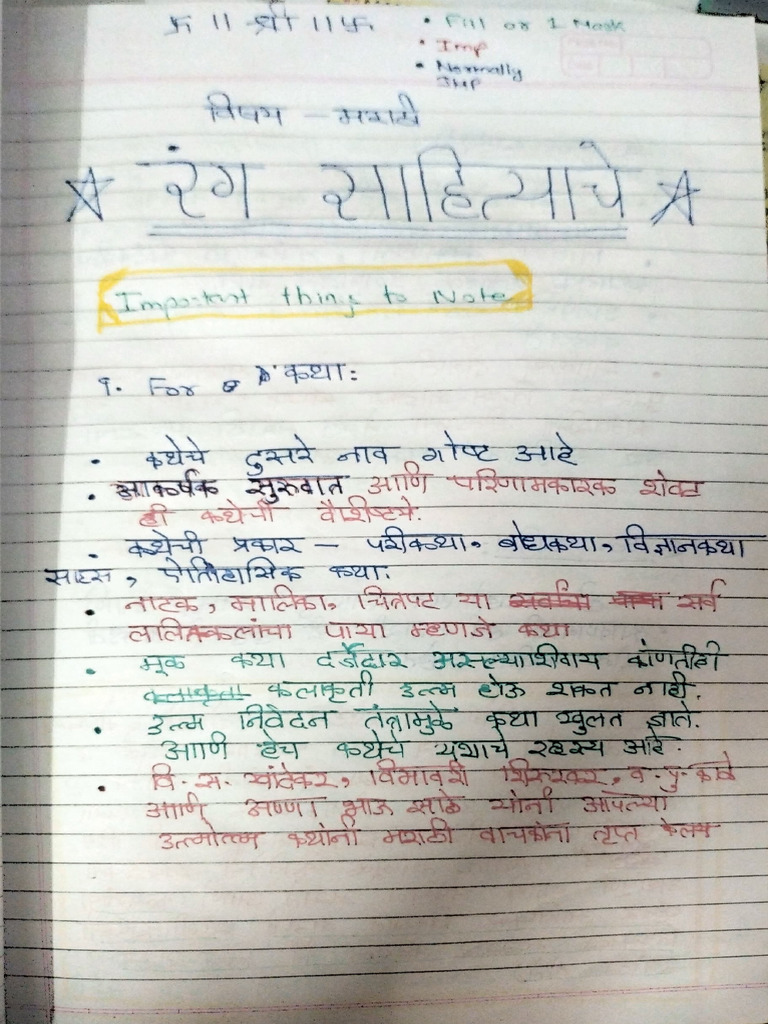 卐 ॥ श्री ॥ 卐
• Fill or 1 Mark
• Imp
• Normally
Imp
विषय - मराठी
☆ रंग साहित्याचे ☆
Important thing to Note
१. For कथा:
• कथेचे दुसरे नाव गोष्ट आहे
• आकर्षक सुरुवात आणि परिणामकारक शेवट
ही कथेची वैशीष्टये.
• कथेची प्रकार - परीकथा, बोधकथा, विज्ञानकथा
साहस, ऐतिहासिक कथा.
• नाटक, मालिका, चित्रपट या सर्व
ललितकलांचा पाया म्हणजे कथा
• मूक कथा दर्जेदार असल्याशिवाय कोणतीही
कलाकृती उत्म होऊ शकत नाही.
• उत्म निवेदन तंत्रामुळे कथा खुलत जाते.
आणि हेच कथेचे यशाचे रहस्य आहे.
• वि. स. खांदेकर, विभावरी शिरुरकर, व. पु. काळे
आणि अण्णा भाऊ साठे यांनी आपल्या
उत्मोत्म कथांनी मराठी वाचकांना तृप्त केलय